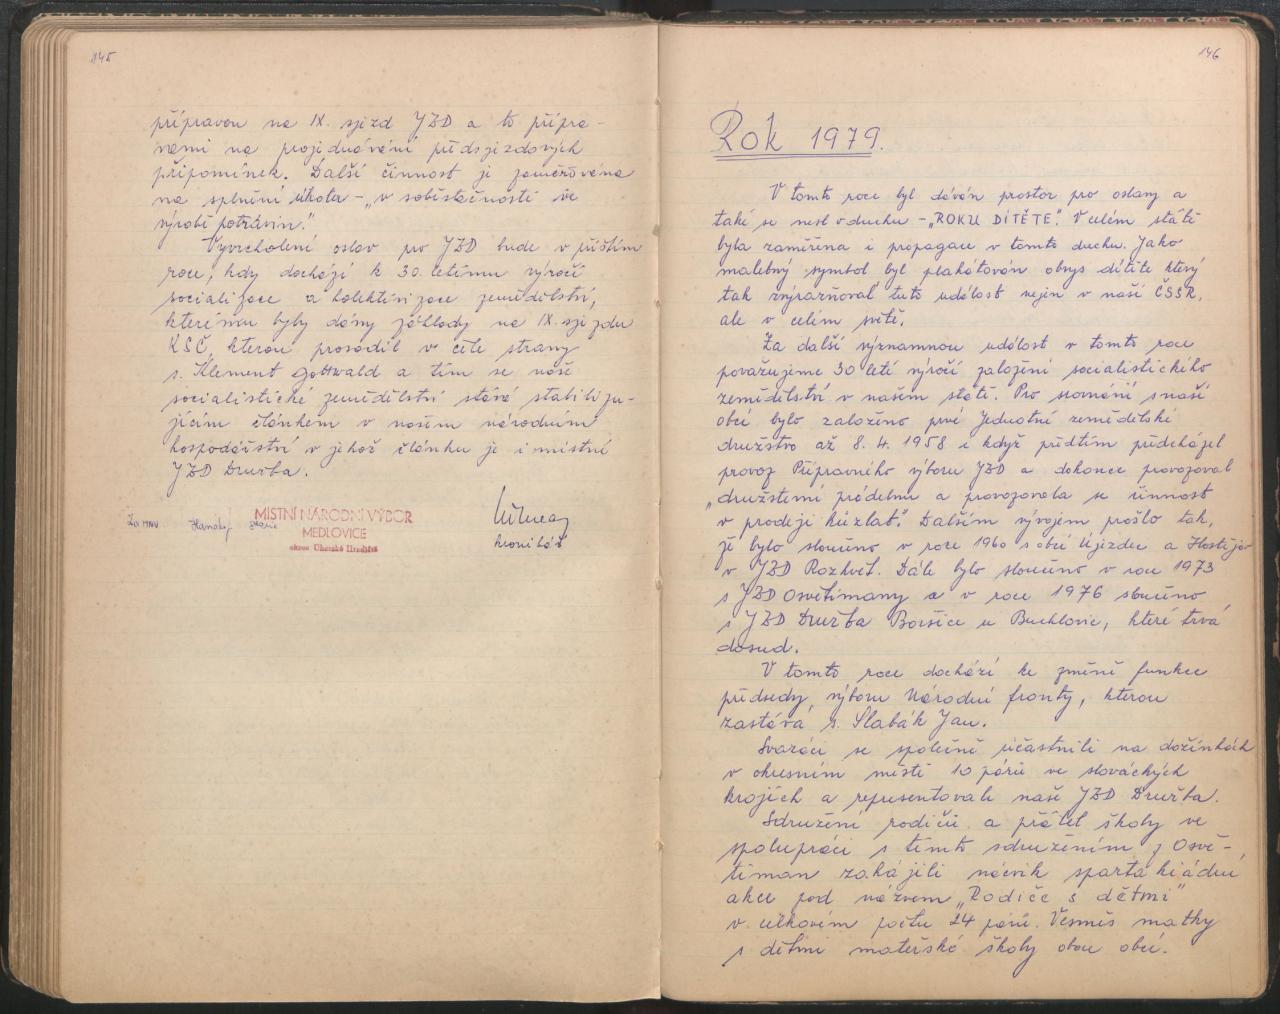 145
přípravou na IX. sjezd JZD a to přípra-
vami na projednávání předsjezdových
připomínek. Další činnost je zaměřována
na splnění úkolu - „v soběstačnosti ve
výrobě potravin."
Vyvrcholení oslav pro JZD bude v příštím
roce, kdy dochází k 30. letému výročí
socializace a kolektivizace zemědělství,
kterému byly dány základy na IX. sjezdu
KSČ, kterou prosadil v čele strany
s. Klement Gottwald a tím se naše
socialistické zemědělství stává stabilizu-
jícím článkem v našem národním
hospodářství v jehož článku je i místní
JZD Družba.
Za MNV
MÍSTNÍ NÁRODNÍ VÝBOR
MEDLOVICE
okres Uherské Hradiště
kronikář
146
Rok 1979.
V tomto roce byl dáván prostor pro oslavy a
také se nesl v duchu - „ROKU DÍTĚTE". V celém státě
byla zaměřena i propagace v tomto duchu. Jako
malebný symbol byl plakátován obrys dítěte který
tak zvýrazňoval tuto událost nejen v naší ČSSR,
ale v celém světě.
Za další významnou událost v tomto roce
považujeme 30 leté výročí založení socialistického
zemědělství v našem státě. Pro srovnání s naší
obcí bylo založeno prvé Jednotné zemědělské
družstvo až 8. 4. 1958 i když předtím předcházel
provoz Přípravného výboru JZD a dokonce provozoval
„družstevní prádelnu a provozovala se činnost
v prodeji kůzlat." Dalším vývojem prošlo tak,
že bylo sloučeno v roce 1960 s obcí Újezdec a Hostějov
v JZD Rozkvět. Dále bylo sloučeno v roce 1973
s JZD Osvětimany a v roce 1976 sloučeno
s JZD Družba Boršice u Buchlovic, které trvá
dosud.
V tomto roce dochází ke změně funkce
předsedy výboru Národní fronty, kterou
zastává s. Slabák Jan.
Svazáci se společně účastnili na dožínkách
v okresním městě 10 párů ve slováckých
krojích a representovali naše JZD Družba.
Sdružení rodičů a přátel školy ve
spolupráci s tímto sdružením z Osvě-
timan zahájili nácvik spartakiádní
akce pod názvem „Rodiče s dětmi"
v celkovém počtu 24 párů. Vesměs matky
s dětmi mateřské školy obou obcí.